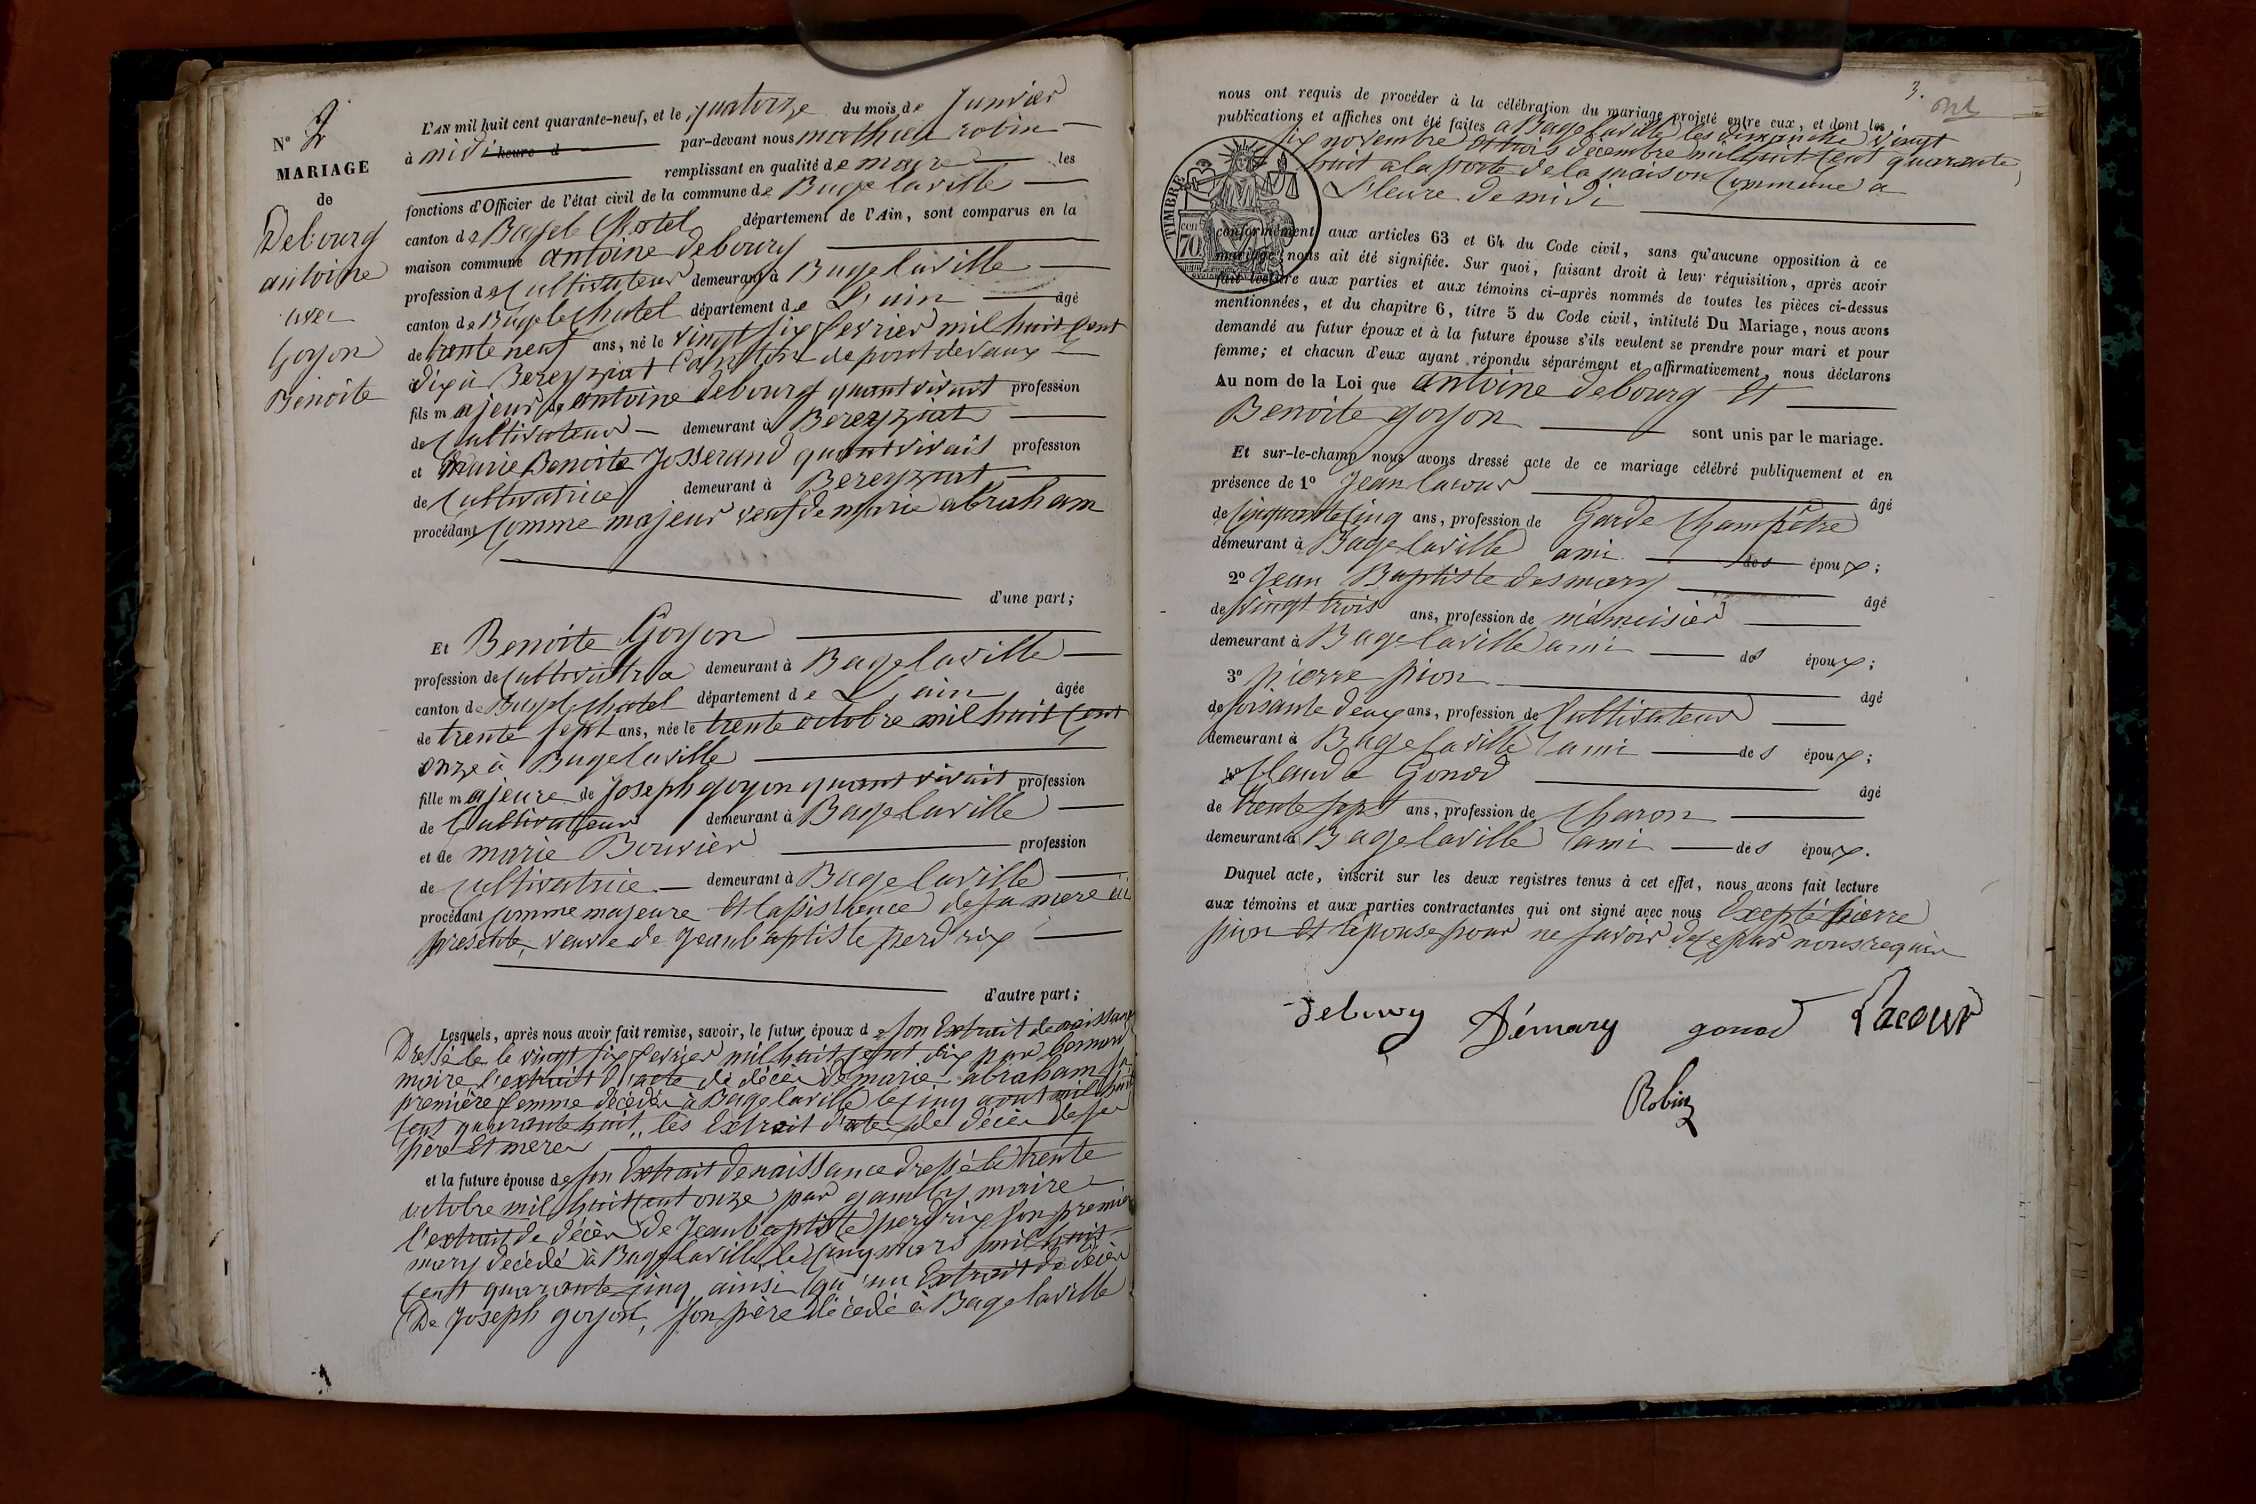 N° 2
MARIAGE
de
Debourg
antoine
avec
Goyon
Benoite
L'AN mil huit cent quarante-neuf, et le quatorze du mois de Janvier
à midi heure d par-devant nous mathieu robin
remplissant en qualité de maire les
fonctions d'Officier de l'état civil de la commune de Bagé laville
canton de Bagé le Chatel département de l'Ain, sont comparus en la
maison commune antoine debourg
profession de Cultivateur demeurant à Bagé laville
canton de Bagé le Chatel département de L'ain âgé
de trente neuf ans, né le vingt six fevrier mil huit Cent
dix à Bereyziat Canton de pont devaux
fils majeur de antoine debourg quant vivait profession
de Cultivateur demeurant à Bereyziat
et marie Benoite Josserand quant vivait profession
de Cultivatrice demeurant à Bereyziat
procédant Comme majeur veuf de marie abraham
d'une part;
Et Benoite Goyon
profession de Cultivatrice demeurant à Bagé laville
canton de Bagé le chatel département de L'ain âgée
de trente sept ans, née le trente octobre mil huit Cent
onze à Bagé laville
fille majeure de Joseph goyon quant vivait profession
de Cultivateur demeurant à Bagé laville
et de marie Bouvier profession
de Cultivatrice demeurant à Bagé laville
procédant Comme majeure et lassistance de sa mere ici
presente, veuve de Jean baptiste perdrix
d'autre part;
Lesquels, après nous avoir fait remise, savoir, le futur époux de son Extrait de naissance
Dressé le vingt six fevrier mil huit cent dix par
maire l'extrait d'acte de décès de marie abraham sa
première femme décédée à Bagé laville le cinq avout mil huit
Cent quarante huit, les Extrait d'actes de décès de ses
père Et mere
et la future épouse de son Extrait de naissance dressé le trente
octobre mil huit cent onze par maire
l'extrait de décès de Jean baptiste perdrix son premier
mary décédé à Bagé laville le cinq mars mil huit
cent quarante cinq ainsi qu'un Extrait de décès
De Joseph goyon, son père décédé à Bagé laville
3.
nous ont requis de procéder à la célébration du mariage projeté entre eux, et dont les
publications et affiches ont été faites à Bagé laville les dimanche vingt
six novembre et trois decembre mil huit Cent quarante
huit a la porte de la maison Commune a
L'heure de midi
TIMBRE
cen
70
conformément aux articles 63 et 64 du Code civil, sans qu'aucune opposition à ce
mariage nous ait été signifiée. Sur quoi, faisant droit à leur réquisition, après avoir
fait lecture aux parties et aux témoins ci-après nommés de toutes les pièces ci-dessus
mentionnées, et du chapitre 6, titre 5 du Code civil, intitulé Du Mariage, nous avons
demandé au futur époux et à la future épouse s'ils veulent se prendre pour mari et pour
femme; et chacun d'eux ayant répondu séparément et affirmativement, nous déclarons
Au nom de la Loi que antoine debourg Et
Benoite goyon sont unis par le mariage.
Et sur-le-champ nous avons dressé acte de ce mariage célébré publiquement et en
présence de 1° Jean lacour âgé
de Cinquante Cinq ans, profession de Garde Champêtre
demeurant à Bagé laville ami des époux;
2° Jean Baptiste desmary âgé
de vingt trois ans, profession de menuisier
demeurant à Bagé laville ami des époux;
3° pierre pion âgé
de soisante deux ans, profession de Cultivateur
demeurant à Bagé laville ami des époux;
4° Claude Gonod âgé
de trente sept ans, profession de Charon
demeurant à Bagé laville ami des époux.
Duquel acte, inscrit sur les deux registres tenus à cet effet, nous avons fait lecture
aux témoins et aux parties contractantes qui ont signé avec nous Excepté pierre
pion Et lepouse pour ne savoir de ce par nous requis
debourg Démary gonod Lacour
Robin